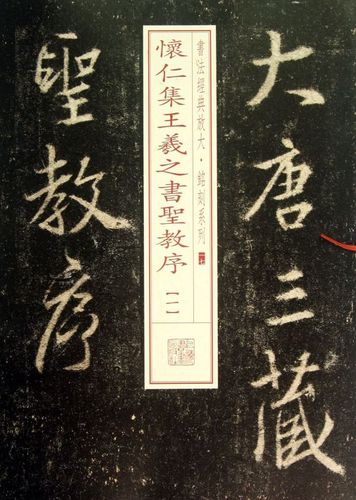 大唐三藏
書法經典放大·銘刻系列
懷仁集王羲之書聖教序【一】
聖教序